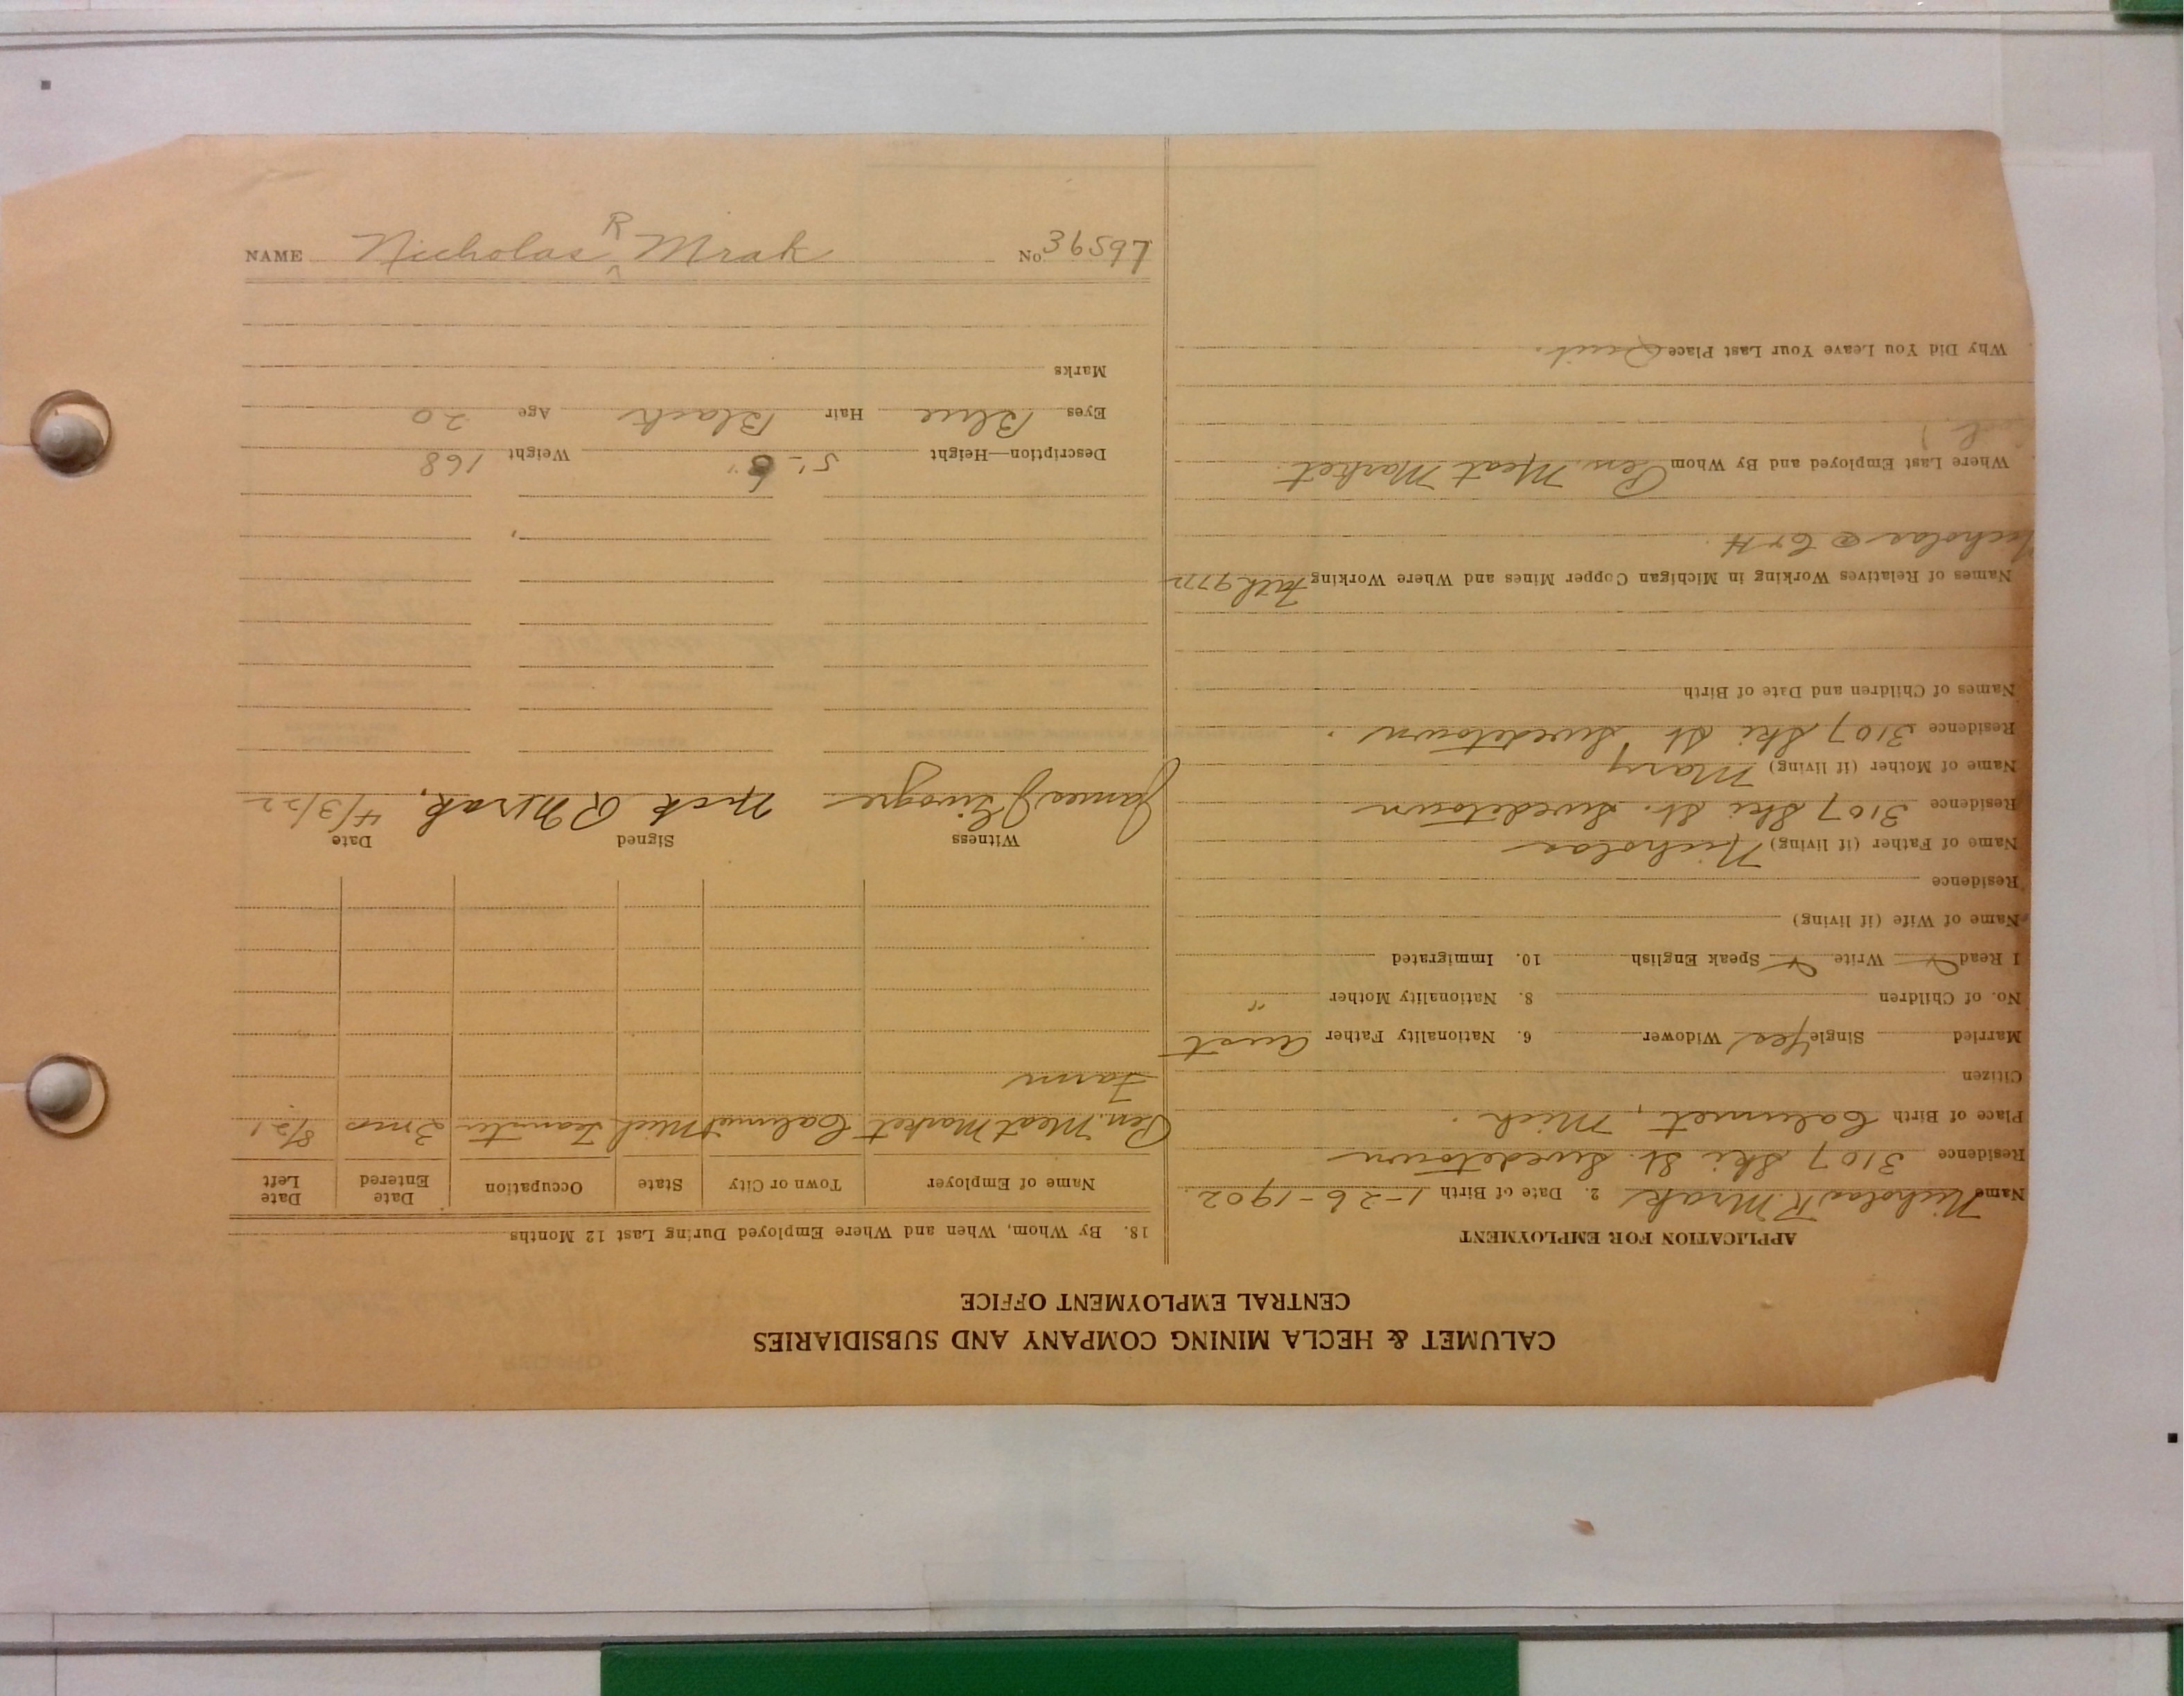 CALUMET & HECLA MINING COMPANY AND SUBSIDIARIES
CENTRAL EMPLOYMENT OFFICE
APPLICATION FOR EMPLOYMENT
Name Nicholas R. Mrak 2. Date of Birth 1-26-1902
Residence 3107 Ski St. Swedetown
Place of Birth Calumet, Mich.
Citizen
Married Single Yes Widower 6. Nationality Father Aust
No. of Children 8. Nationality Mother "
I Read Write Speak English 10. Immigrated
Name of Wife (if living)
Residence
Name of Father (if living) Nicholas
Residence 3107 Ski St. Swedetown
Name of Mother (if living) Mary
Residence 3107 Ski St. Swedetown
Names of Children and Date of Birth
Names of Relatives Working in Michigan Copper Mines and Where Working Fath 9772
Nicholas C & H
Where Last Employed and By Whom Pen. Meat Market
Why Did You Leave Your Last Place Quit.
18. By Whom, When and Where Employed During Last 12 Months
Name of Employer Town or City State Occupation Date Entered Date Left
Pen. Meat Market Calumet Mich Teamster 3 mos 8/21
Farm
Witness Signed Date
James Nick R Mrak. 4/3/22
Description—Height 5'-6" Weight 168
Eyes Blue Hair Black Age 20
Marks
NAME Nicholas R Mrak No. 36597